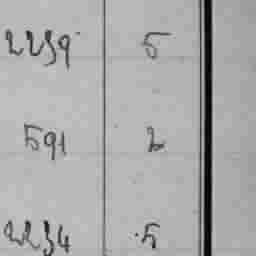 2239 5
591 2
2234 5